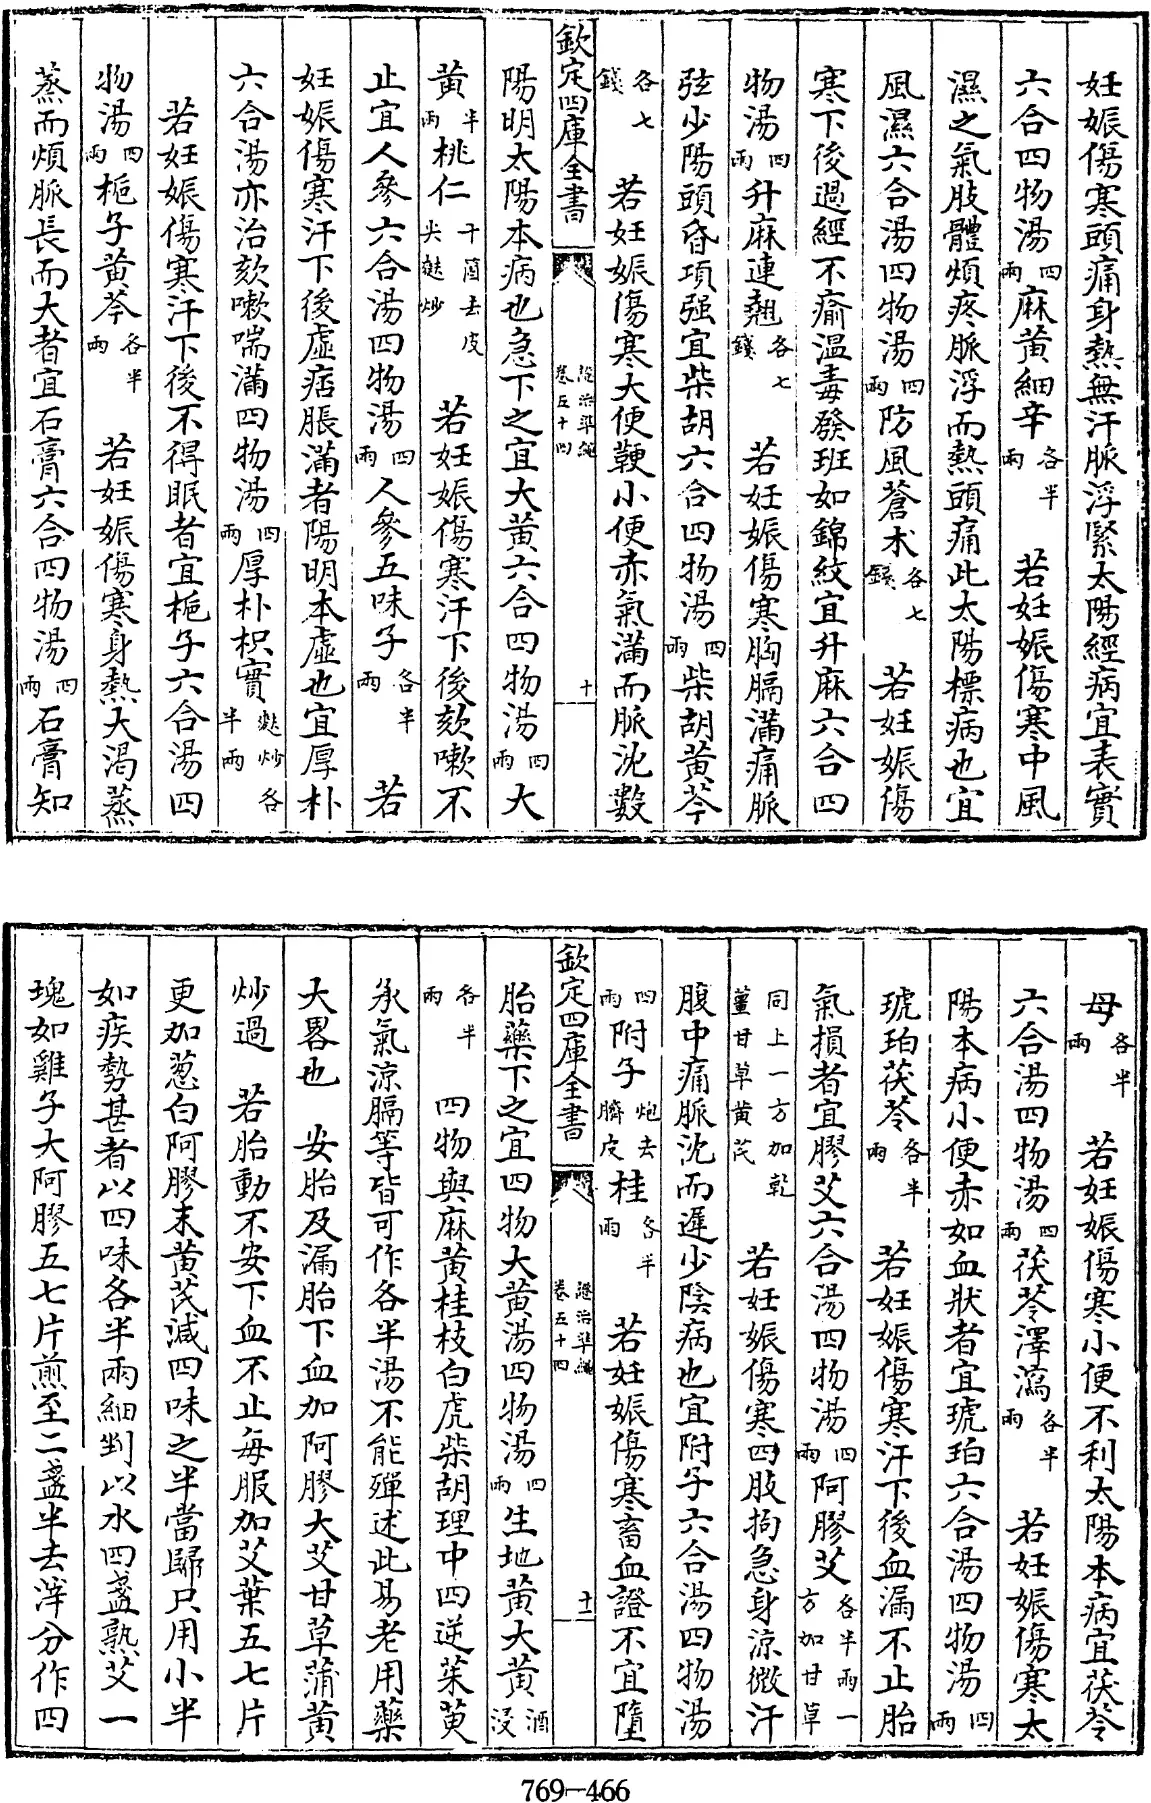 妊娠傷寒頭痛身熱無汗脈浮緊太陽經病宜表實
六合四物湯四兩麻黄細辛各半兩 若妊娠傷寒中風
濕之氣肢體煩疼脈浮而熱頭痛此太陽標病也宜
風濕六合湯四物湯四兩防風蒼朮各七錢 若妊娠傷
寒下後過經不瘉温毒發班如錦紋宜升麻六合四
物湯四兩升麻連翹各七錢 若妊娠傷寒胸膈滿痛脈
弦少陽頭昏項强宜柴胡六合四物湯四兩柴胡黄芩
各七錢 若妊娠傷寒大便鞕小便赤氣滿而脈沈數
欽定四庫全書 證治準繩卷五十四 十一
陽明太陽本病也急下之宜大黄六合四物湯四兩大
黄半兩桃仁十箇去皮尖麩炒 若妊娠傷寒汗下後欬嗽不
止宜人參六合湯四物湯四兩人參五味子各半兩 若
妊娠傷寒汗下後虛痞脹滿者陽明本虛也宜厚朴
六合湯亦治欬嗽喘滿四物湯四兩厚朴枳實麩炒各半兩
若妊娠傷寒汗下後不得眠者宜梔子六合湯四
物湯四兩梔子黄芩各半兩 若妊娠傷寒身熱大渴蒸
蒸而煩脈長而大者宜石膏六合四物湯四兩石膏知
母各半兩 若妊娠傷寒小便不利太陽本病宜茯苓
六合湯四物湯四兩茯苓澤瀉各半兩 若妊娠傷寒太
陽本病小便赤如血狀者宜琥珀六合湯四物湯四兩
琥珀茯苓各半兩 若妊娠傷寒汗下後血漏不止胎
氣損者宜膠艾六合湯四物湯四兩阿膠艾各半兩一方加甘草
同上一方加乾薑甘草黄芪 若妊娠傷寒四肢拘急身涼微汗
腹中痛脈沈而遲少陰病也宜附子六合湯四物湯
四兩附子炮去臍皮桂各半兩 若妊娠傷寒畜血證不宜墮
欽定四庫全書 證治準繩卷五十四 十二
胎藥下之宜四物大黄湯四物湯四兩生地黄大黄酒浸
各半兩 四物與麻黄桂枝白虎柴胡理中四逆茱萸
承氣涼膈等皆可作各半湯不能殫述此易老用藥
大畧也 安胎及漏胎下血加阿膠大艾甘草蒲黄
炒過 若胎動不安下血不止每服加艾葉五七片
更加葱白阿膠末黄芪減四味之半當歸只用小半
如疾勢甚者以四味各半兩細剉以水四盞熟艾一
塊如雞子大阿膠五七片煎至二盞半去滓分作四
769-466